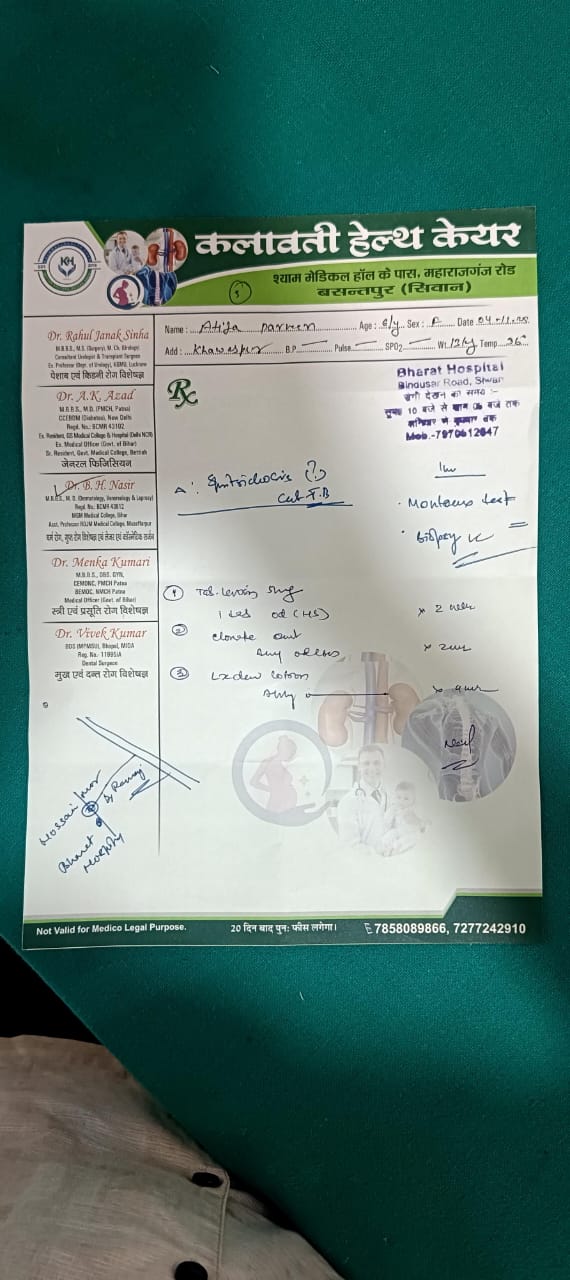 कलावती हेल्थ केयर
श्याम मेडिकल हॉल के पास, महाराजगंज रोड
बसन्तपुर (सिवान)
KH
Name : Atija Parween Age : 6/y Sex : F Date 04-11-25
Add : Khawaspur B.P Pulse SPO2 Wt. 12kg Temp 96°
Dr. Rahul Janak Sinha
M.B.B.S., M.S. (Surgery), M. Ch. (Urology)
Consultant Urologist & Transplant Surgeon
Ex. Professor (Dept. of Urology), KGMU, Lucknow
पेशाब एवं किडनी रोग विशेषज्ञ
Dr. A.K. Azad
M.B.B.S., M.D. (PMCH, Patna)
CCEBDM (Diabetes), New Delhi
Regd. No.: BCMR 43102
Ex. Resident, GS Medical College & Hospital (Delhi NCR)
Ex. Medical Officer (Govt. of Bihar)
Sr. Resident, Govt. Medical College, Bettiah
जेनरल फिजिसियन
Dr. B. H. Nasir
M.B.B.S., M. D. (Dermatology, Venereology & Leprosy)
Regd. No.: BCMR 43612
MGM Medical College, Bihar
Asst. Professor RDJM Medical College, Muzaffarpur
चर्म रोग, गुप्त रोग विशेषज्ञ एवं लेजर एवं कॉस्मेटिक सर्जन
Dr. Menka Kumari
M.B.B.S., DGO, GYN,
CEMONC, PMCH Patna
BEMOC, NMCH Patna
Medical Officer (Govt. of Bihar)
स्त्री एवं प्रसूति रोग विशेषज्ञ
Dr. Vivek Kumar
BDS (MPMSU), Bhopal, MIDA
Reg. No.- 11995/A
Dental Surgeon
मुख एवं दन्त रोग विशेषज्ञ
Rx
Bharat Hospital
Bindusar Road, Siwan
रोगी देखने का समय :-
सुबह 10 बजे से शाम 05 बजे तक
शनिवार से बुधवार तक
Mob.-7970612047
(?)
Cut T.B
Inv
Montoux test
Biopsy
1 Tab. 5mg
1 tab od (HS) x 2 week
2
x 2
3 lotion
x
Bharat
Not Valid for Medico Legal Purpose.
20 दिन बाद पुन: फीस लगेगा।
7858089866, 7277242910